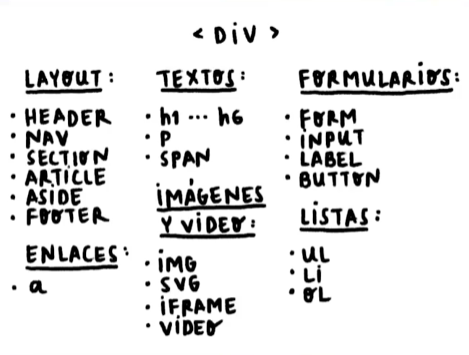 < DiV >
LAYOUT:
• HEADER
• NAV
• SECTION
• ARTICLE
• ASIDE
• FOOTER
ENLACES:
• a
TEXTOS:
• h1 ... h6
• P
• SPAN
iMÁGENES
Y ViDEO:
• iMG
• SVG
• iFRAME
• ViDEO
FORMULARiOS:
• FORM
• iNPUT
• LABEL
• BUTTON
LiSTAS:
• UL
• Li
• OL